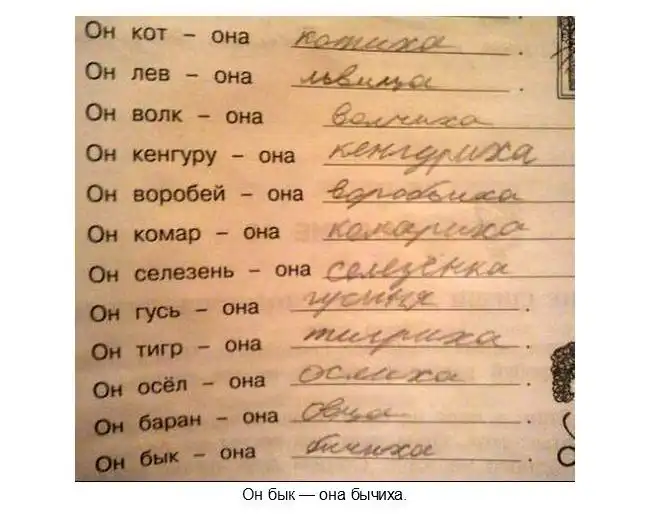 Он кот – она котиха.
Он лев – она львица.
Он волк – она волчиха
Он кенгуру – она кенгуриха
Он воробей – она воробьиха
Он комар – она комариха
Он селезень – она селезёнка
Он гусь – она гусиня.
Он тигр – она тигриха.
Он осёл – она ослиха.
Он баран – она овца.
Он бык – она бычиха.
Он бык — она бычиха.